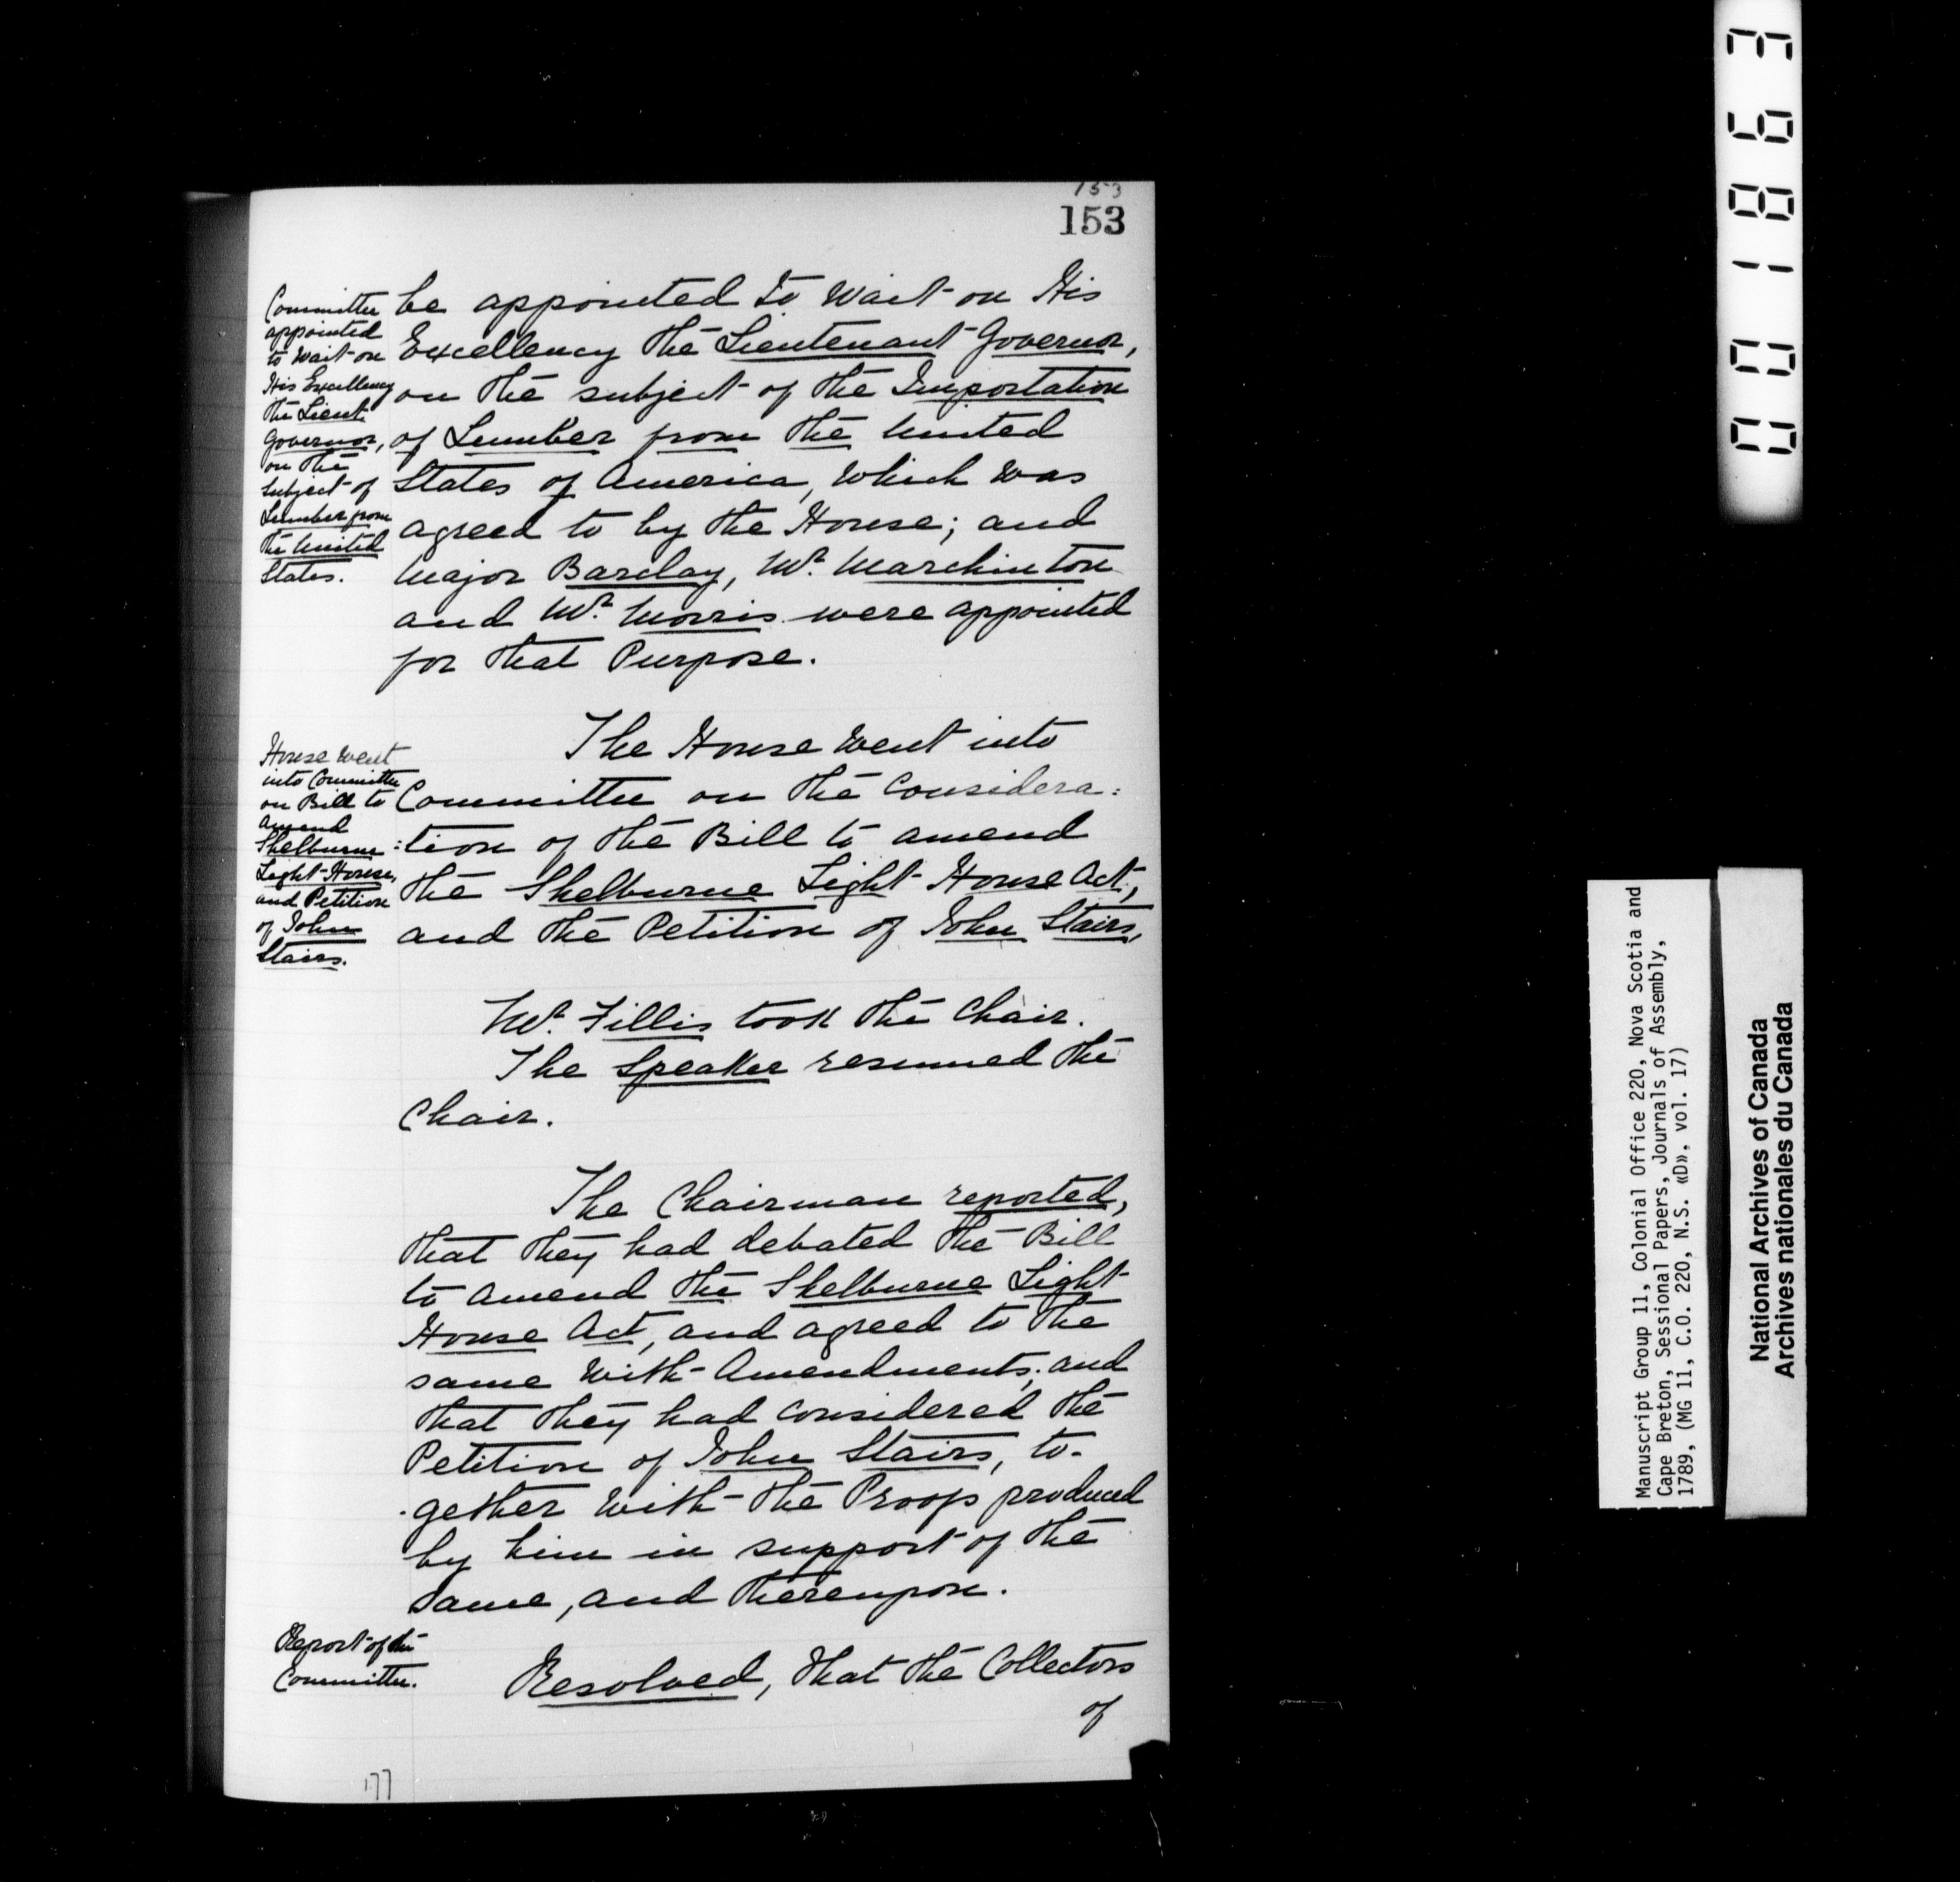 153
153
Committee
appointed
to Wait on
His Excellency
the Lieut
Governor,
on the
subject of
Lumber from
the United
States.
be appointed to Wait on His
Excellency the Lieutenant Governor,
on the subject of the Importation
of Lumber from the United
States of America, which was
agreed to by the House; and
Major Barclay, Mr. Marchinton
and Mr. Morris were appointed
for that Purpose.
House went
into Committee
on Bill to
amend
Shelburne
Light-House,
and Petition
of John
Stairs.
The House went into
Committee on the Considera:
:tion of the Bill to amend
the Shelburne Light House Act,
and the Petition of John Stairs,
Mr. Fillis took the Chair.
The Speaker resumed the
Chair.
The Chairman reported,
that they had debated the Bill
to amend the Shelburne Light
House Act, and agreed to the
same with Amendments; and
that they had considered the
Petition of John Stairs, to-
-gether with the Proofs produced
by him in support of the
same, and thereupon.
Report of the
Committee.
Resolved, that the Collectors
of
177
001863
Manuscript Group 11, Colonial Office 220, Nova Scotia and
Cape Breton, Sessional Papers, Journals of Assembly,
1789, (MG 11, C.O. 220, N.S. «D», vol. 17)
National Archives of Canada
Archives nationales du Canada